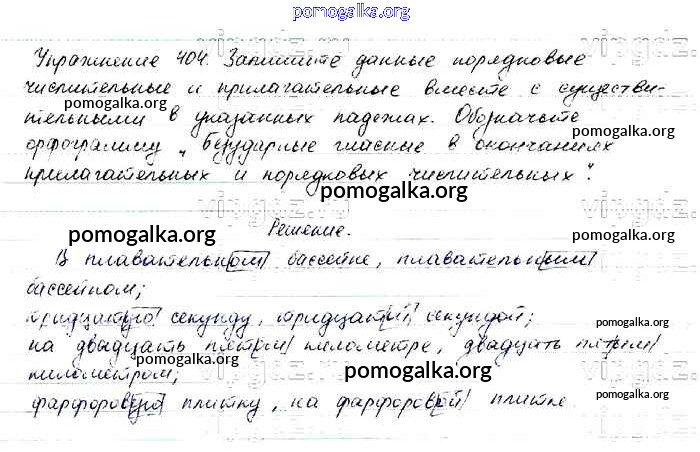 pomogalka.org
Упражнение 404. Запишите данные порядковые
числительные и прилагательные вместе с существи-
pomogalka.org
тельными в указанных падежах. Обозначьте
pomogalka.org
орфограмму „Безударные гласные в окончаниях
прилагательных и порядковых числительных".
pomogalka.org
Решение.
pomogalka.org
pomogalka.org
В плавательном бассейне, плавательным
бассейном;
тридцатую секунду, тридцатой секундой;
pomogalka.org
на двадцать пятом километре, двадцать пятым
pomogalka.org
километром;
pomogalka.org
фарфоровую плитку, на фарфоровой плитке.